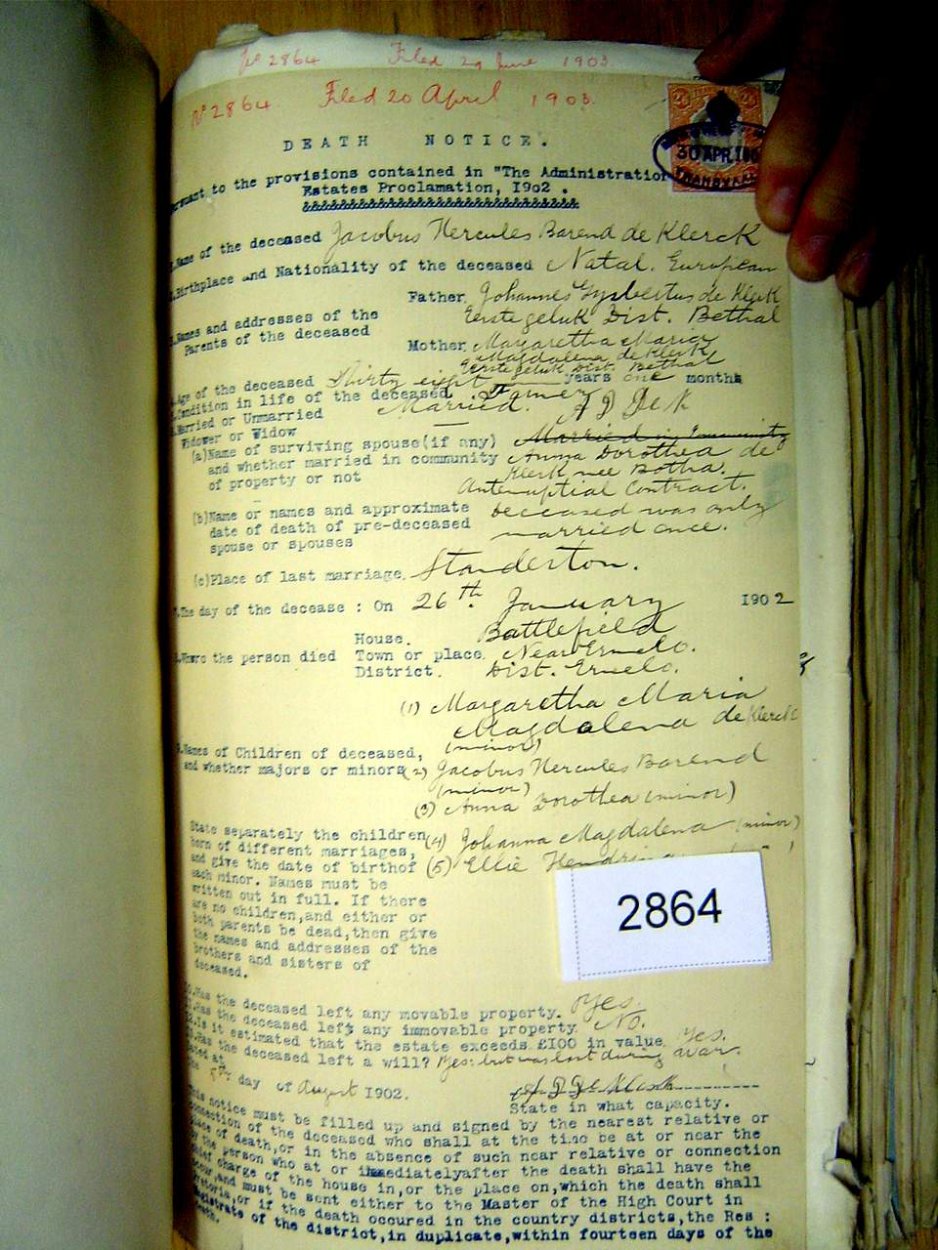 No 2864 Filed 29 June 1903
No 2864 Filed 20 April 1903.
30 APR 190
TRANSVAAL
DEATH NOTICE.
to the provisions contained in "The Administration
Estates Proclamation, 1902 .
Name of the deceased Jacobus Hercules Barend de Klerck
Birthplace and Nationality of the deceased Natal. European
Father Johannes Gysbertus de Klerk
Eerstegeluk Dist. Bethal
Names and addresses of the
Parents of the deceased
Mother Margaretha Maria
Magdalena de Klerk
Eerstegeluk Dist. Bethal
Age of the deceased Thirty eight years one months
Condition in life of the deceased. Farmer
Married or Unmarried Married.
Widower or Widow
(a)Name of surviving spouse(if any) Married in Community
and whether married in community Anna Dorothea de
of property or not Klerk nee Botha.
Antenuptial Contract.
(b)Name or names and approximate deceased was only
date of death of pre-deceased married once.
spouse or spouses
(c)Place of last marriage. Standerton.
The day of the decease : On 26th. January 1902
House. Battlefield
Where the person died Town or place. Near Ermelo.
District. Dist. Ermelo.
(1) Margaretha Maria
Magdalena de Klerck
(minor)
Names of Children of deceased,
and whether majors or minors (2) Jacobus Hercules Barend
(minor)
(3) Anna Dorothea (minor)
State separately the children (4) Johanna Magdalena (minor)
born of different marriages,
and give the date of birthof (5) Ellie
each minor. Names must be
written out in full. If there
are no children,and either or
both parents be dead,then give
the names and addresses of the
brothers and sisters of
deceased.
Has the deceased left any movable property. Yes.
Has the deceased left any immovable property No.
Is it estimated that the estate exceeds £100 in value Yes.
Has the deceased left a will? Yes: but was lost during war.
Dated at
the 5th day of August 1902.
State in what capacity.
This notice must be filled up and signed by the nearest relative or
connection of the deceased who shall at the time be at or near the
place of death,or in the absence of such near relative or connection
by the person who at or immediatelyafter the death shall have the
chief charge of the house in,or the place on,which the death shall
occur,and must be sent either to the Master of the High Court in
Pretoria,or if the death occured in the country districts,the Res :
Magistrate of the district,in duplicate,within fourteen days of the
death.
2864